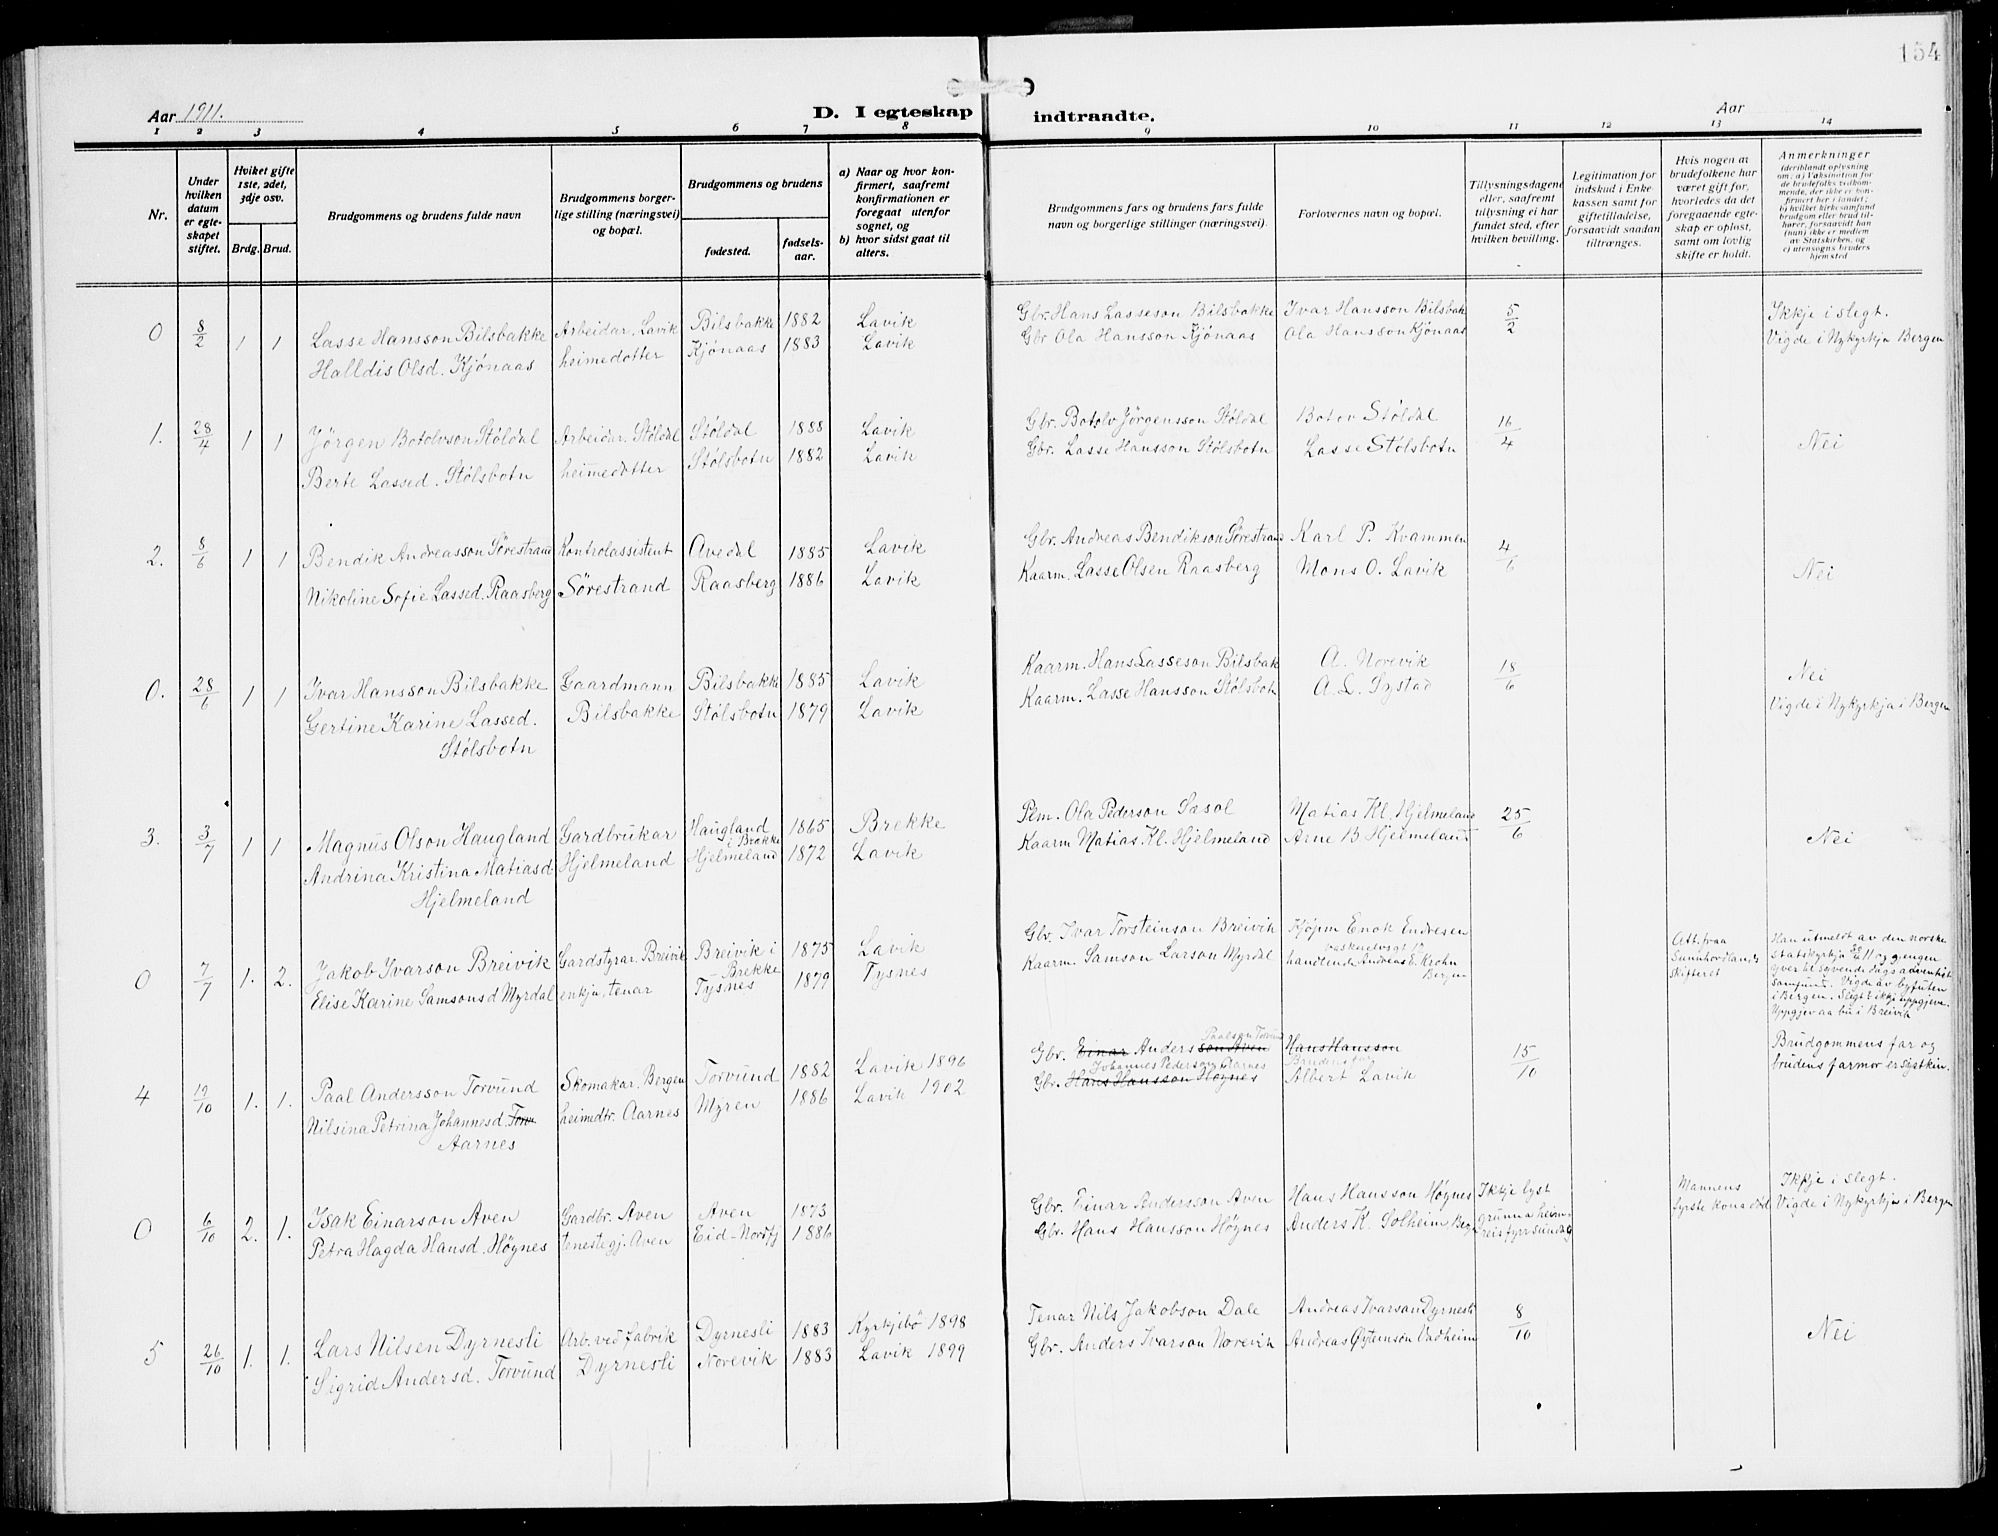 154
Aar 1911.
D. I egteskap indtraadte.
Aar
1 2 3 4 5 6 7 8 9 10 11 12 13 14
Nr.
Under hvilken datum er egteskapet stiftet.
Hviket gifte 1ste, 2det, 3dje osv.
Brdg. Brud.
Brudgommens og brudens fulde navn
Brudgommens borgerlige stilling (næringsvei) og bopæl.
Brudgommens og brudens
fødested.
fødselsaar.
a) Naar og hvor konfirmert, saafremt konfirmationen er foregaat utenfor sognet, og
b) hvor sidst gaat til alters.
Brudgommens fars og brudens fars fulde navn og borgerlige stillinger (næringsvei).
Forlovernes navn og bopæl.
Tillysningsdagene eller, saafremt tillysning ei har fundet sted, efter hvilken bevilling.
Legitimation for indskud i Enkekassen samt for giftetilladelse, forsaavidt saadan tiltrænges.
Hvis nogen at brudefolkene har været gift før, hvorledes da det foregaaende egteskap er opløst, samt om lovlig skifte er holdt.
Anmerkninger
(deriblandt oplysning om: a) Vaksination for de brudefolks vedkommende, der ikke er konfirmert her i landet; b) hvilket kirkesamfund brudgom eller brud tilhører, forsaavidt han (hun) ikke er medlem av Statskirken, og c) utensogns bruders hjemsted
0 8/2 1 1 Lasse Hansson Bilsbakke Arbeidar, Lavik Bilsbakke 1882 Lavik Gbr. Hans Lasseson Bilsbakke Ivar Hansson Bilsbak 5/2 Ikkje i slegt.
Halldis Olsd. Kjønaas heimedotter Kjønaas 1883 Lavik Gbr Ola Hansson Kjönaas Ola Hansson Kjönaas Vigde i Nykyrkja Bergen
1. 28/4 1 1 Jörgen Botolvson Stöldal Arbeidar, Stöldal Stöldal 1888 Lavik Gbr. Botolv Jörgensson Stöldal Botov Stöldal 16/4 Nei
Berte Lassed. Stølsbotn heimedotter Stølsbotn 1882 Lavik Gbr. Lasse Hansson Stølsbotn Lasse Stølsbotn
2. 8/6 1 1 Bendik Andreasson Sørestrand Kontrolassistent Avedal 1885 Lavik Gbr. Andreas Bendikson Sørestrand Karl P. Kvammen 4/6 Nei
Nikoline Sofie Lassed. Raasberg Sørestrand Raasberg 1886 Lavik Kaarm. Lasse Olsen Raasberg Mons O. Lavik
0. 28/6 1 1 Ivar Hansson Bilsbakke Gaardmann Bilsbakke 1885 Lavik Kaarm. Hans Lasseson Bilsbak A. Norevik 18/6 Nei
Gertine Karine Lassed. Bilsbakke Stølsbotn 1879 Lavik Kaarm. Lasse Hansson Stølsbotn A. L. Systad Vigde i Nykyrkja i Bergen
Stølsbotn
3. 3/7 1 1 Magnus Olson Haugland Gardbrukar Haugland i Brekke 1865 Brekke Plm. Ola Pederson Sæsol Matias Kl. Hjelmeland 25/6 Nei
Andrina Kristina Matiasd. Hjelmeland Hjelmeland 1872 Lavik Kaarm Matias Kl. Hjelmeland Arne B Hjelmeland
Hjelmeland
0 7/7 1. 2. Jakob Ivarson Breivik Gardstyrar, Breivik Breivik i Brekke 1875 Lavik Gbr. Ivar Torsteinson Breivik Kjøpm Enok Endresen
Elise Karine Samsonsd Myrdal enkja, tenar Tysnes 1879 Tysnes Kaarm. Samson Larson Myrdal handlende Andreas E. Krohn Bergen
Att. fraa Sunnhordlands skifteret
Han utmeldt av den norske statskyrkja 30/6 11 og gjengen yver til syvende dags adventist samfund. Vigde av byfuten i Bergen. Slegt ikkje uppgjeve. Uppgjev aa bu i Breivik
4 19/10 1. 1. Paal Andersson Torvund Skomakar, Bergen Torvund 1882 Lavik 1896 Gbr. Einar Andersson Aven Paalson Torvund Hans Hansson 15/10 Brudgommens far og
Nilsina Petrina Johannesd. Torv heimedtr. Aarnes Myren 1886 Lavik 1902 Gbr. Hans Hansson Høgnes Johannes Pederson Aarnes Brudens far Albert Lavik brudens farmor er systkin.
Aarnes
0 6/10 2. 1. Isak Einarson Aven Gardbr. Aven Aven 1873 Gbr. Einar Andersson Aven Hans Hansson Høgnes Ikkje lyst Mannens Ikkje i slegt.
Petra Hagda Hansd. Høgnes tenestegj. Aven Eid-Nordfj 1886 Gbr. Hans Hansson Høgnes Anders K. Solheim Berg grunna heim- fyrste kona död Vigde i Nykyrkja i Bergen
reis fyrr sundag
5 26/10 1. 1. Lars Nilsen Dyrnesli Arb. ved fabrik Dyrnesli 1883 Kyrkjebø 1898 Tenar Nils Jakobson Dale Andreas Ivarson Dyrnesli 8/10 Nei
Sigrid Andersd. Torvund Dyrnesli Norevik 1883 Lavik 1899 Gbr. Anders Ivarson Norevik Andreas Øystenson Vadheim